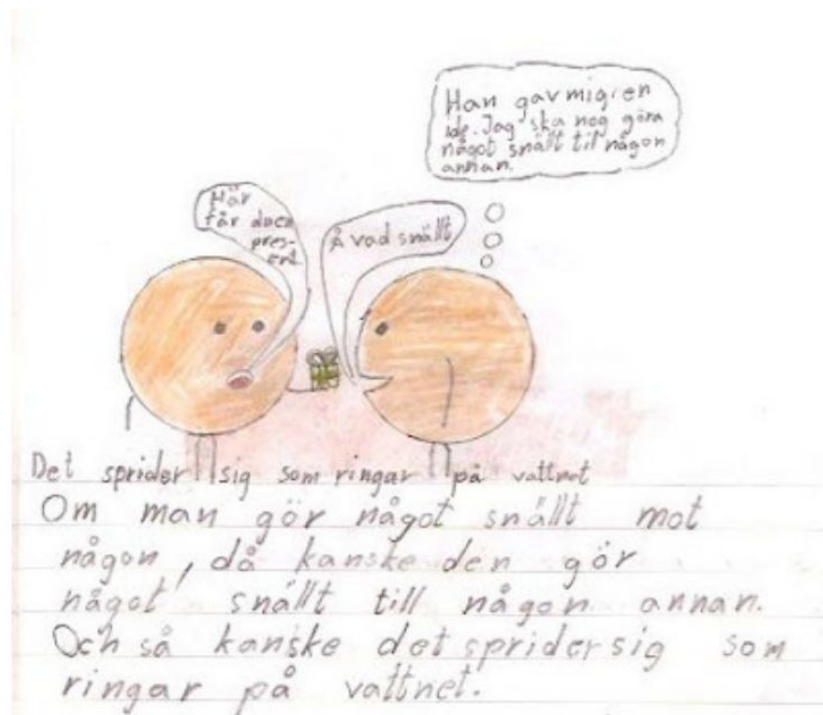 Han gav mig en
ide. Jag ska nog göra
något snällt til någon
annan.
Här
får du en
pres-
ent
Å vad snällt
Det sprider sig som ringar på vattnet
Om man gör något snällt mot
någon, då kanske den gör
något snällt till någon annan.
Och så kanske det sprider sig som
ringar på vattnet.